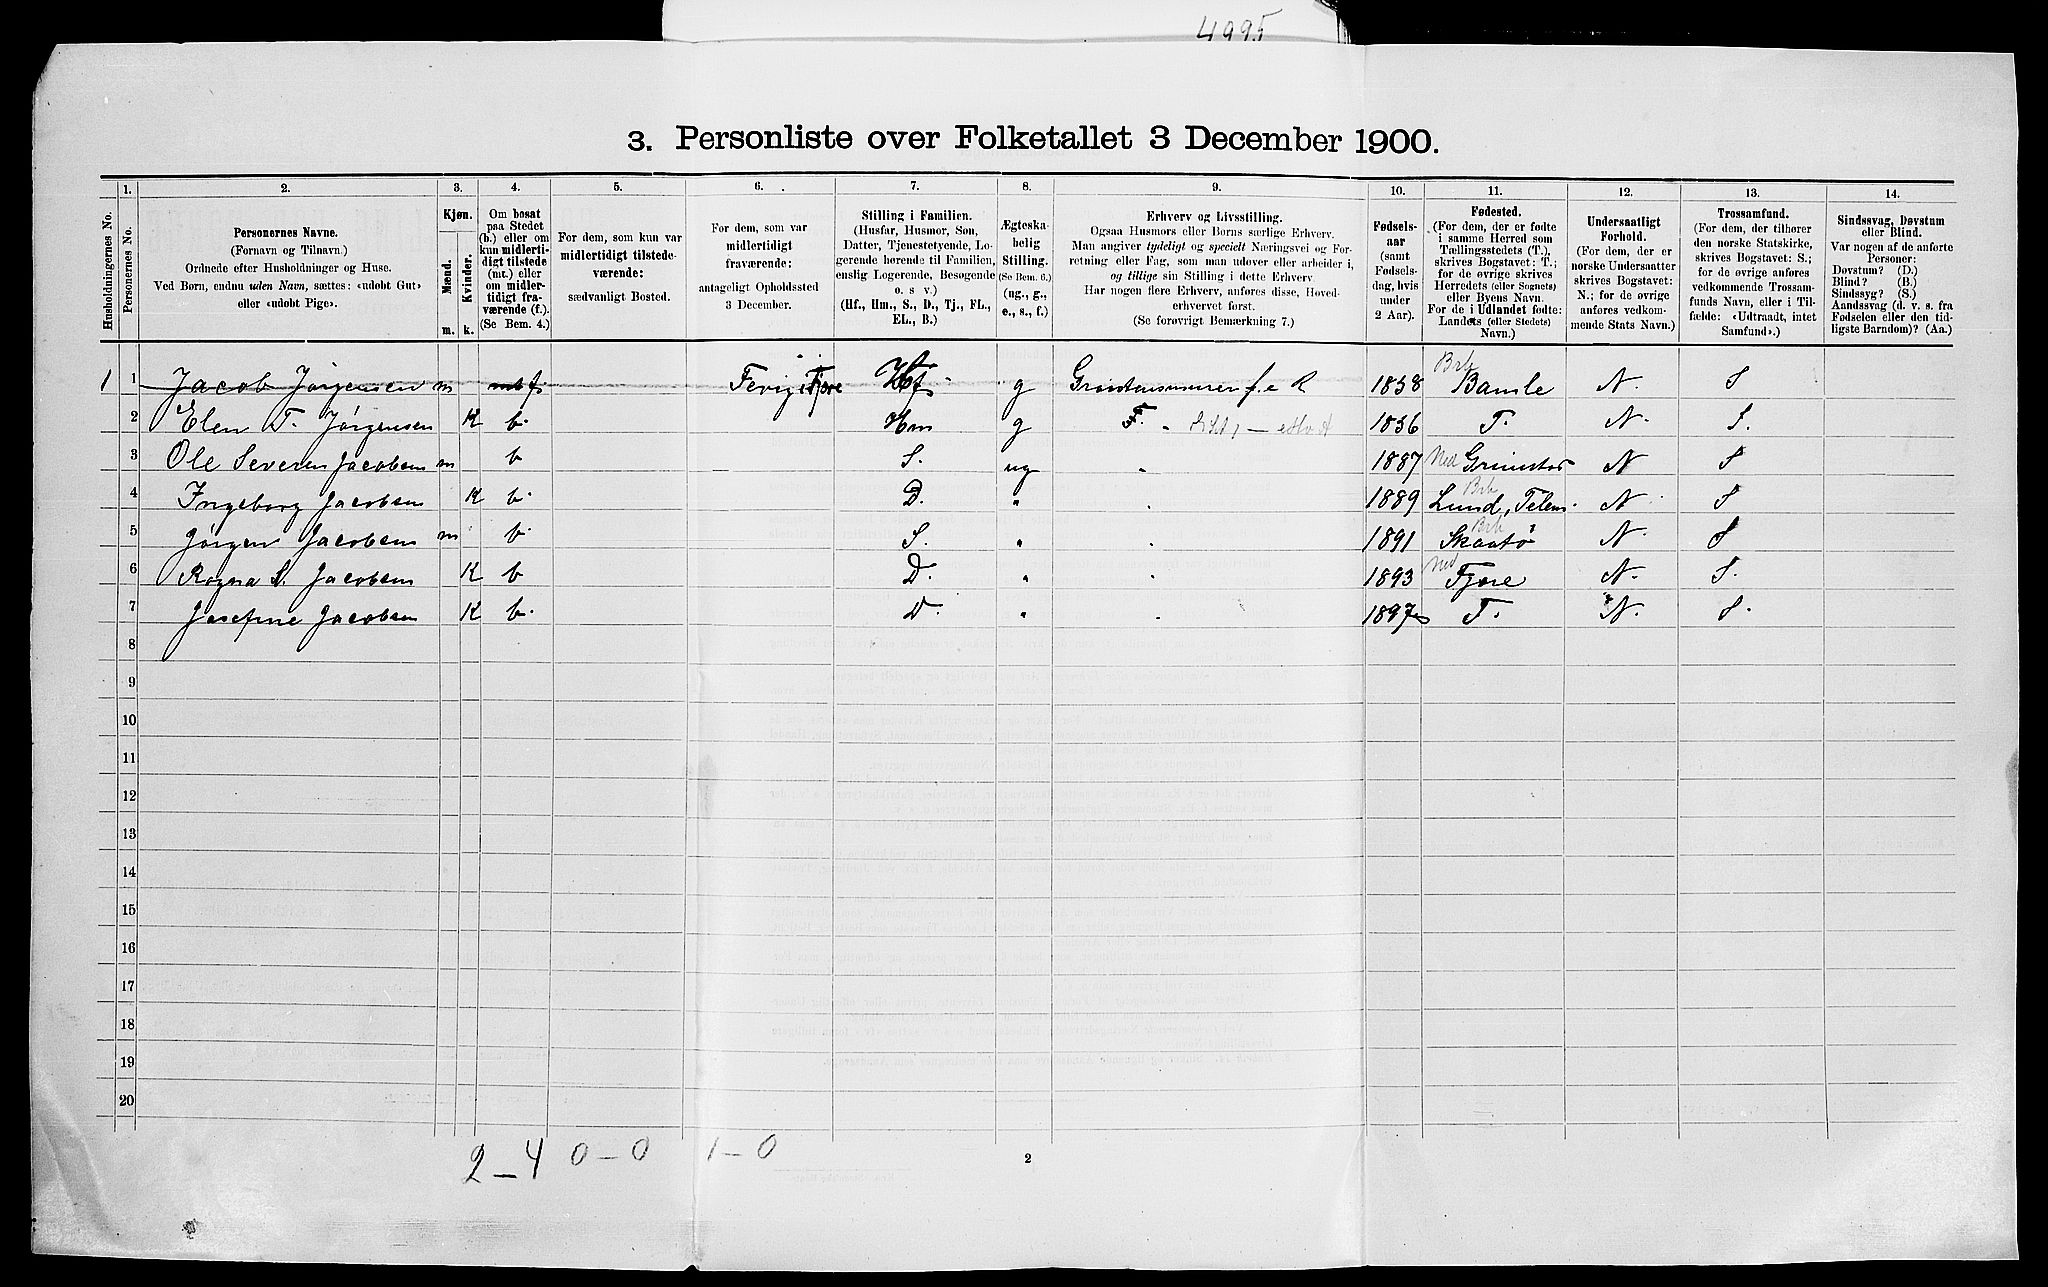 4995
3. Personliste over Folketallet 3 December 1900.
1. 2. 3. 4. 5. 6. 7. 8. 9. 10. 11. 12. 13. 14.
Husholdningernes No.
Personernes No.
Personernes Navne.
(Fornavn og Tilnavn.)
Ordnede efter Husholdninger og Huse.
Ved Børn, endnu uden Navn, sættes: «udobt Gut»
eller «udobt Pige».
Kjøn.
Mænd.
Kvinder.
m. k.
Om bosat
paa Stedet
(b.) eller om
kun midlerti-
digt tilstede
(mt.) eller
om midler-
tidigt fra-
værende (f.).
(Se Bem. 4.)
For dem, som kun var
midlertidigt tilstede-
værende:
sædvanligt Bosted.
For dem, som var
midlertidigt
fraværende:
antageligt Opholdssted
3 December.
Stilling i Familien.
(Husfar, Husmor, Søn,
Datter, Tjenestetyende, Lo-
gerende hørende til Familien,
enslig Logerende, Besøgende
o. s v.)
(Hf., Hm., S., D., Tj., FL.,
EL., B.)
Ægteska-
belig
Stilling.
(Se Bem. 6.)
(ug., g.,
e., s., f.)
Erhverv og Livsstilling.
Ogsaa Husmors eller Børns særlige Erhverv.
Man angiver tydeligt og specielt Næringsvei og For-
retning eller Fag, som man udover eller arbeider i,
og tillige sin Stilling i dette Erhverv.
Har nogen flere Erhverv, anføres disse, Hoved-
erhvervet først.
(Se forøvrigt Bemærkning 7.)
Fødsels-
aar
(samt
Fødsels-
dag, hvis
under
2 Aar).
Fødested.
(For dem, der er fødte
i samme Herred som
Tællingsstedets (T.),
skrives Bogstavet: T.;
for de øvrige skrives
Herredets (eller Sognets)
eller Byens Navn.
For de i Udlandet fødte:
Landets (eller Stedets)
Navn.)
Undersaatligt
Forhold.
(For dem, der er
norske Undersaatter
skrives Bogstavet:
N.; for de øvrige
anføres vedkom-
mende Stats Navn.)
Trossamfund.
(For dem, der tilhører
den norske Statskirke,
skrives Bogstavet: S.;
for de øvrige anføres
vedkommende Trossam-
funds Navn, eller i Til-
fælde: «Udtraadt, intet
Samfund».)
Sindssvag, Døvstum
eller Blind.
Var nogen af de anførte
Personer:
Døvstum? (D.)
Blind? (B.)
Sindssyg? (S.)
Aandssvag (d. v. s. fra
Fødselen eller den tid-
ligste Barndom)? (Aa.)
Brb
1 1 Jacob Jørgensen m mt f Fevig i Fjære Hf g f. e R 1838 Bamle N. S
2 Elen T. Jørgensen K b. Hm g 1836 T. N. S.
3 Ole Severin Jacobsen m b S. ug " 1887 Ned Grimstad N S
Brb
4 Ingeborg Jacobsen K b. D. " " 1889 Lund, Telem. N S
Brb
5 Jørgen Jacobsen m b. S. " " 1891 Skaatø N. S
6 Ragna S. Jacobsen K b D. " " 1893 Ned Fjære N. S.
7 Josefine Jacobsen K b. D. " " 1897 T. N. S.
8
9
10
11
12
13
14
15
16
17
18
19
20
2 – 4 0 – 0 1 – 0
2